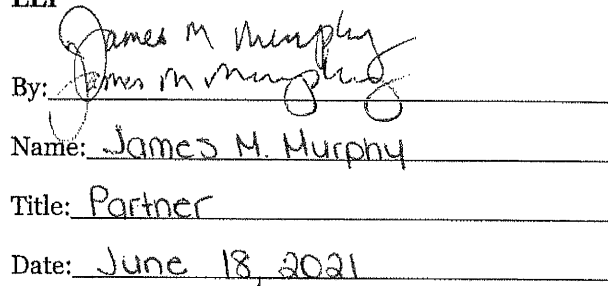 LLP
James M Murphy
By: James M Murphy
Name: James M. Murphy
Title: Partner
Date: June 18, 2021